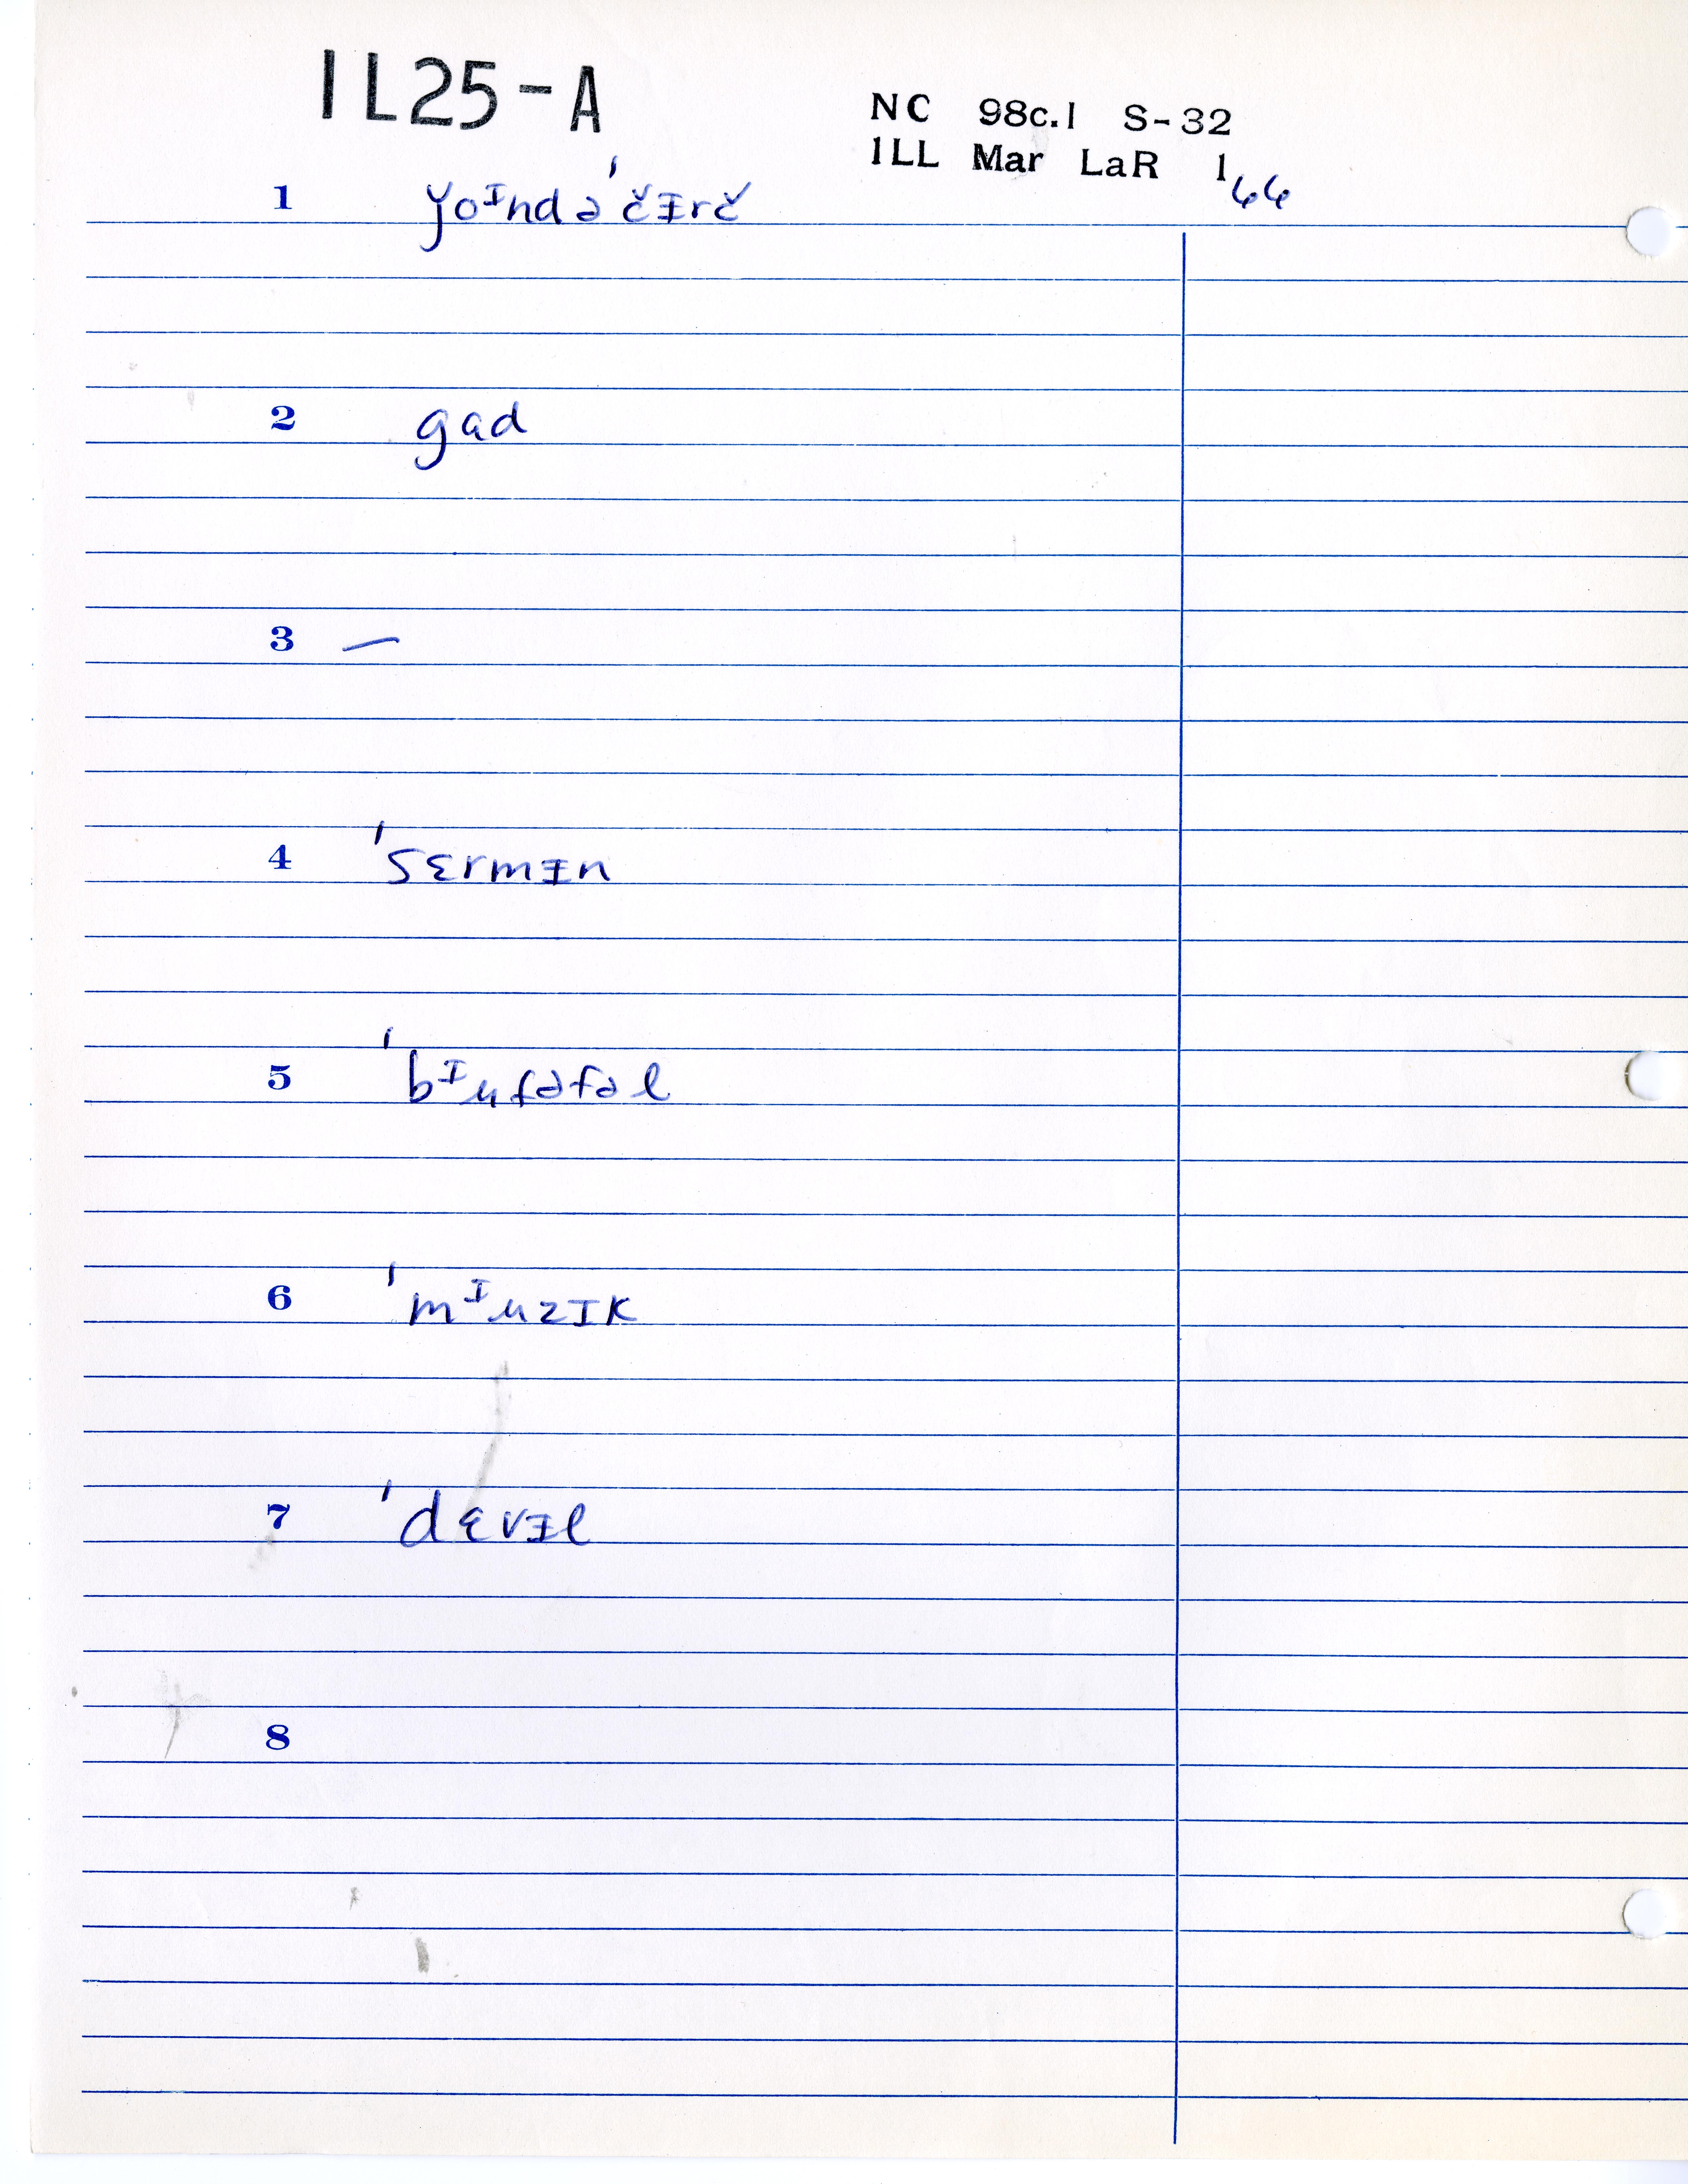 IL25-A
NC 98c.1 S-32
ILL Mar LaR 1 66
1 ǰoᴵndə'čɨrč
2 gad
3 —
4 'sɛrmɨn
5 'bᴵufəfəl
6 'mᴵuzɪk
7 'dɛvɨl
8